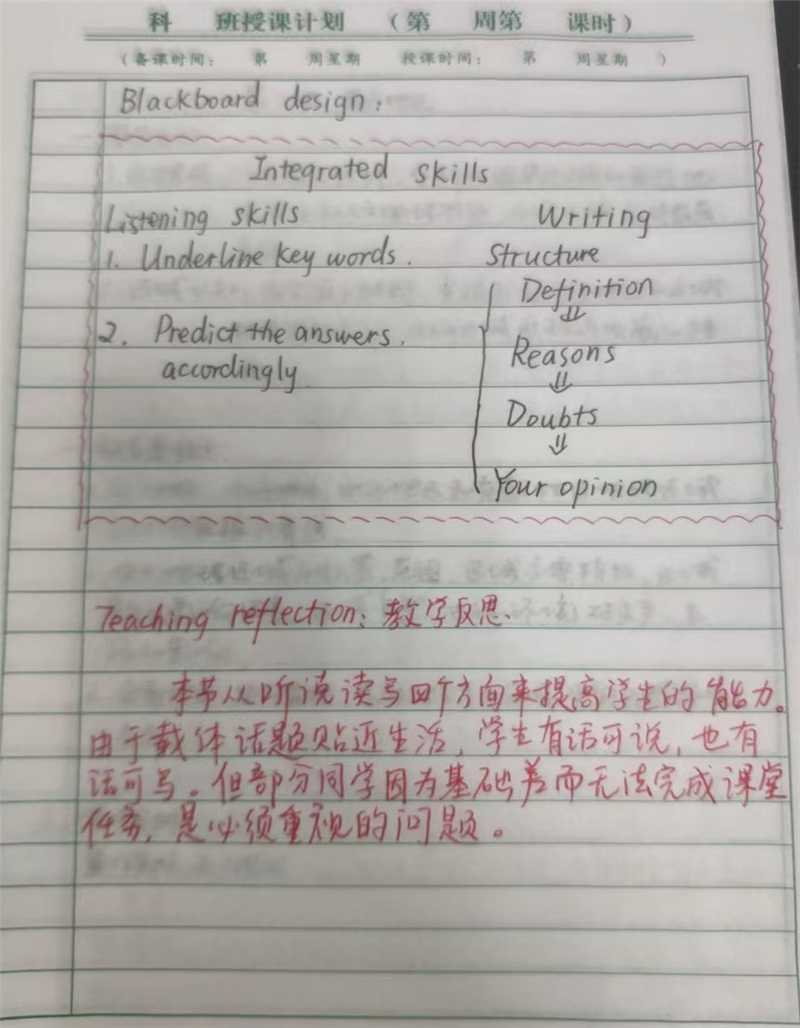 科 班授课计划 （第 周第 课时）
（备课时间： 第 周星期 授课时间： 第 周星期 ）
Blackboard design:
Integrated skills
Listening skills
1. Underline key words.
2. Predict the answers.
accordingly
Writing
Structure
Definition
⇓
Reasons
⇓
Doubts
⇓
Your opinion
Teaching reflection: 教学反思.
本节从听说读写四个方面来提高学生的能力。
由于载体话题贴近生活, 学生有话可说, 也有
话可写。但部分同学因为基础差而无法完成课堂
任务, 是必须重视的问题。